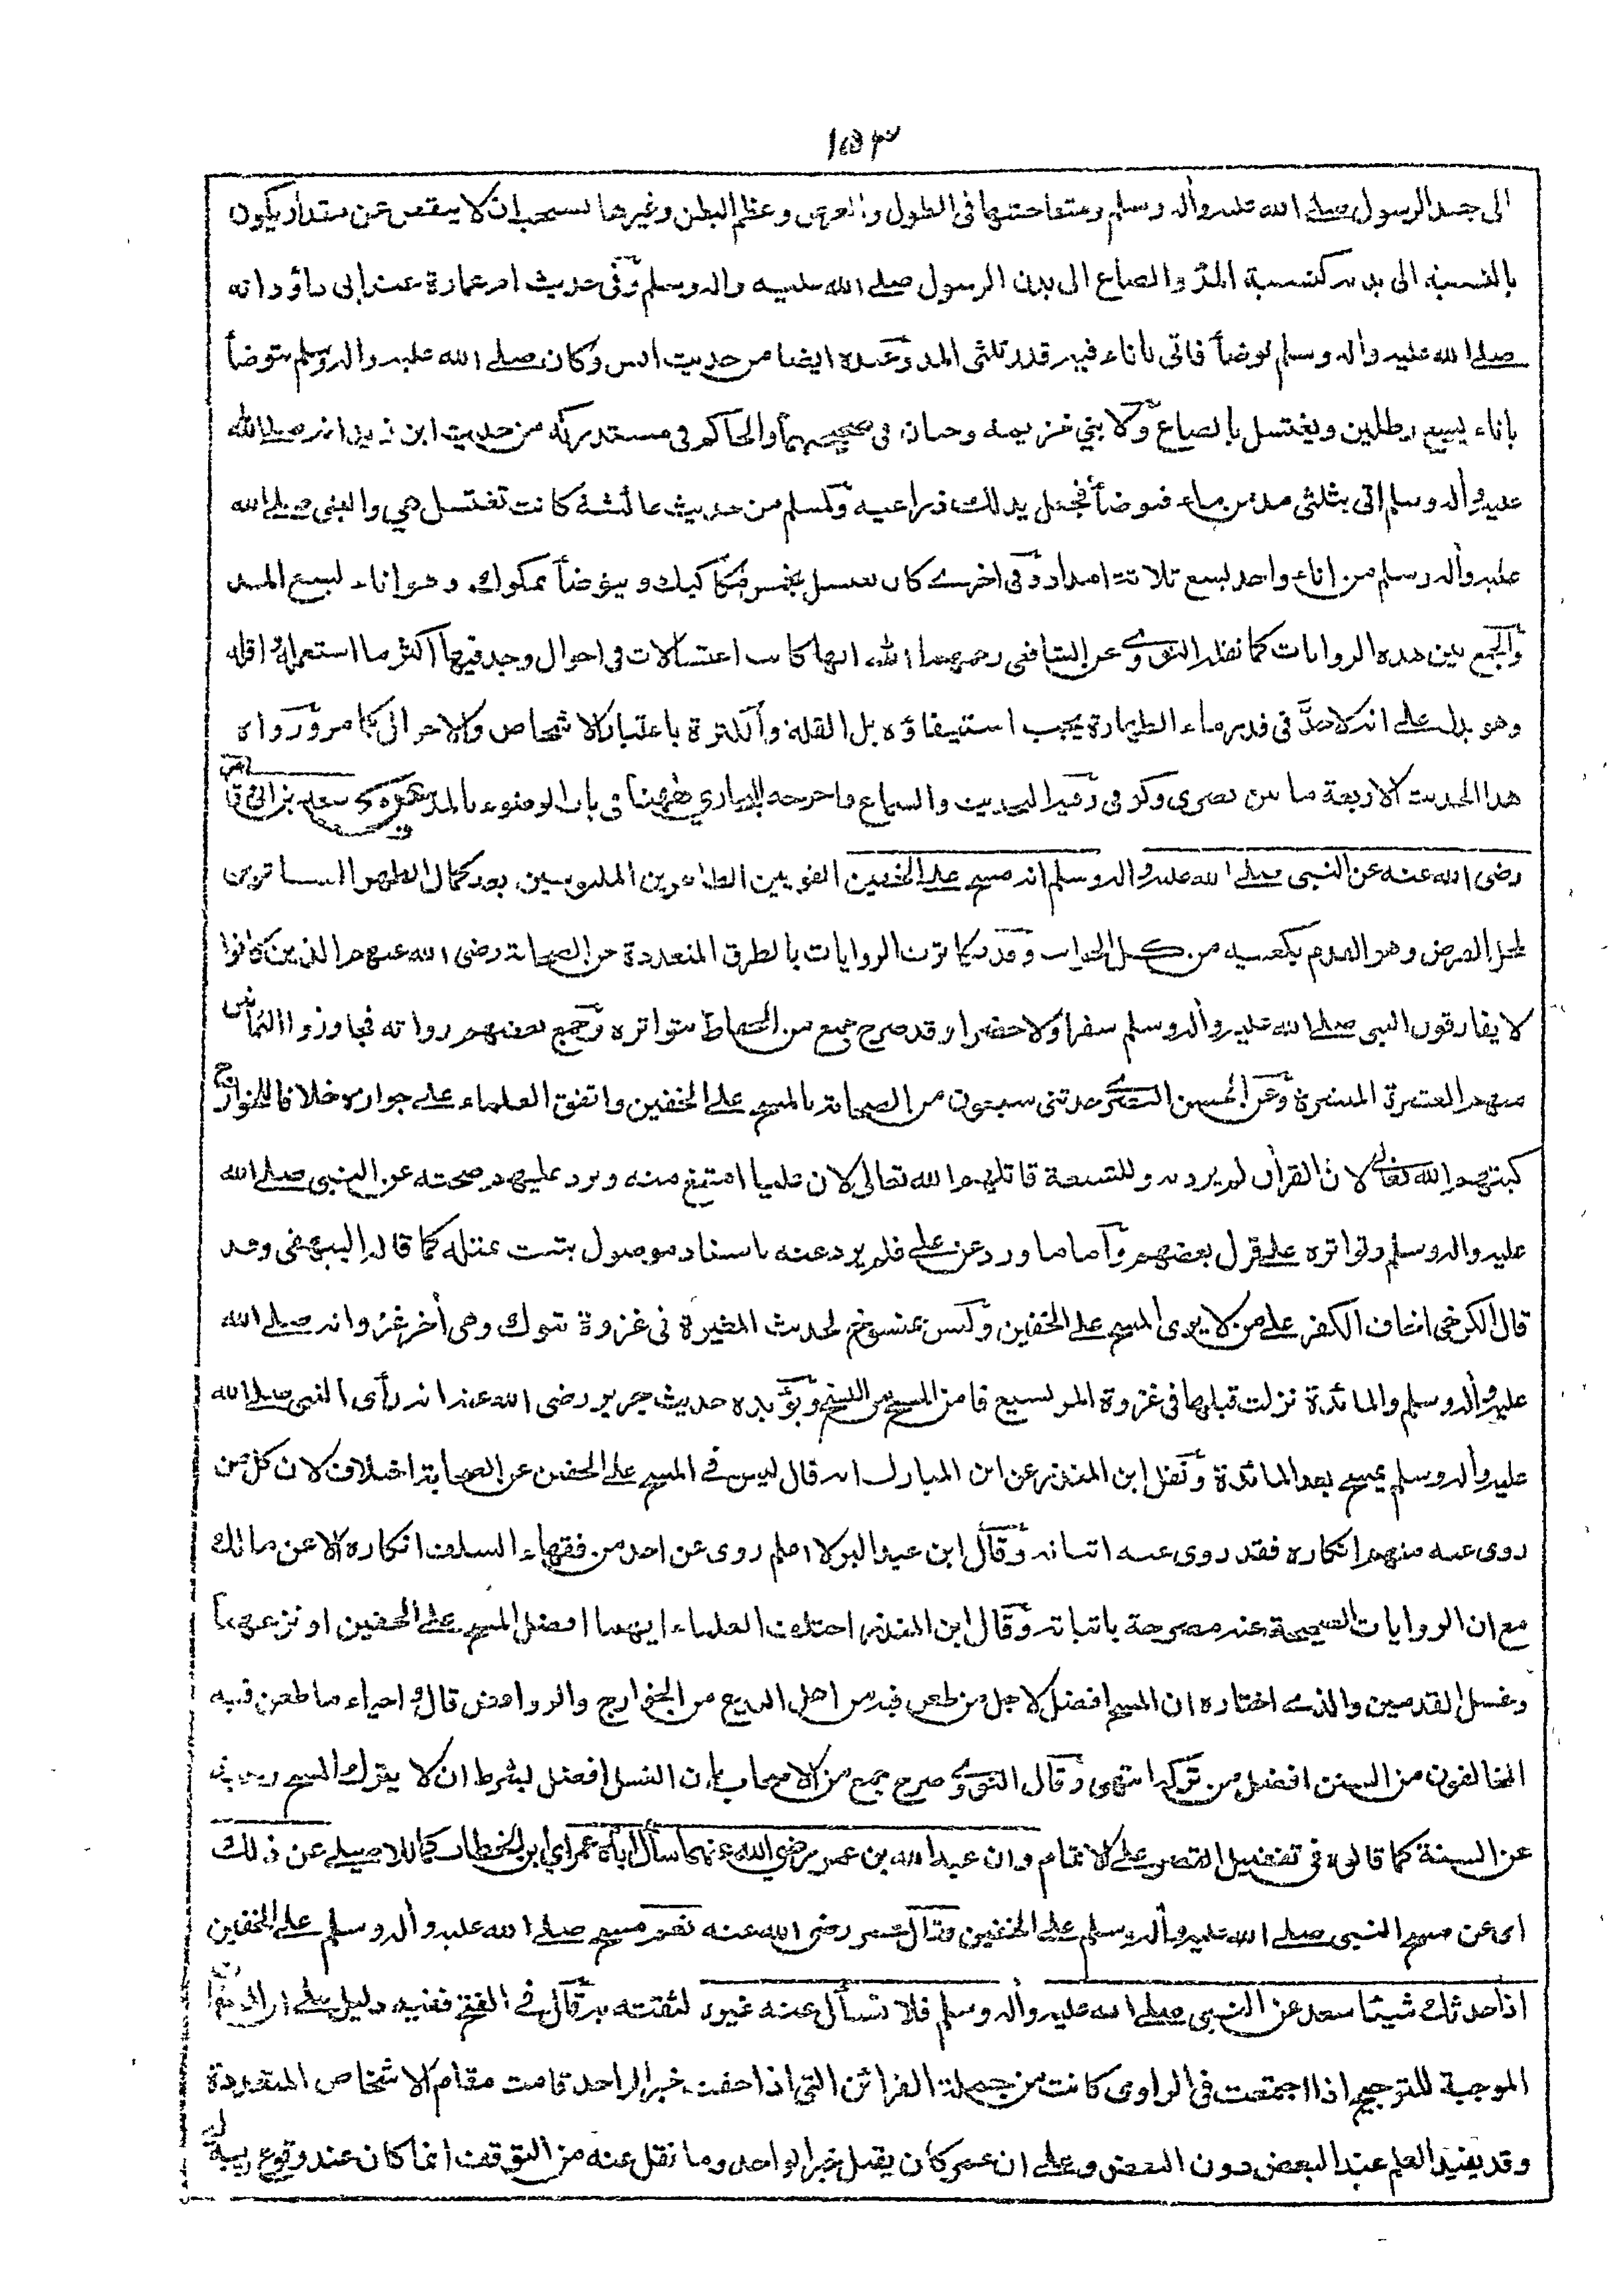 ١٥٣
الى جسد الرسول صلى الله عليه واله وسلم ومتفاحشها فى الطول والعرض وعظم البطن وغيرها يستحب ان لا ينقص عن مقدار يكون
بالنسبة الى بدنه كنسبة المد والصاع الى بدن الرسول صلى الله عليه واله وسلم وفى حديث ام عمارة عند ابى داؤد انه
صلى الله عليه واله وسلم توضأ فاتى باناء فيه قدر ثلثى المد وعنده ايضا من حديث انس وكان صلى الله عليه واله وسلم يتوضأ
باناء يسع رطلين ويغتسل بالصاع ولابنى خزيمة وحبان فى صحيحيهما والحاكم فى مستدركه من حديث ابن زيد انه صلى الله
عليه واله وسلم اتى بثلثى مد من ماء فتوضأ فجعل يدلك ذراعيه ولمسلم من حديث عائشة كانت تغتسل هى والنبى صلى الله
عليه واله وسلم من اناء واحد يسع ثلاثة امداد وفى اخرى كان يغتسل بخمس مكاكيك ويتوضأ بمكوك وهو اناء يسع المد
والجمع بين هذه الروايات كما نقله النووى عن الشافعى رحمهما الله انها كانت اغتسالات فى احوال وجد فيها اكثر ما استعمله واقله
وهو يدل على انه لا حد فى قدر ماء الطهارة يجب استيفاؤه بل القلة والكثرة باعتبار الاشخاص والاحوال كما مر ورواة
هذا الحديث الاربعة ما بين بصرى وكوفى وفيه التحديث والسماع واخرجه البخارى ههنا فى باب الوضوء بالمد عن سعد بن ابى وقاص
رضى الله عنه عن النبى صلى الله عليه واله وسلم انه مسح على الخفين القويين الطاهرين الملبوسين بعد كمال الطهر الساترين
لمحل الفرض وهو القدم بكعبيه من كل الجوانب وقد تكاثرت الروايات بالطرق المتعددة من الصحابة رضى الله عنهم الذين كانوا
لا يفارقون النبى صلى الله عليه واله وسلم سفرا ولا حضرا وقد صرح جمع من الحفاظ بتواتره وجمع بعضهم رواته فجاوزوا الثمانين
منهم العشرة المبشرة وعن الحسن البصرى حدثنى سبعون من الصحابة بالمسح على الخفين واتفق العلماء على جوازه خلافا للخوارج
كبتهم الله تعالى لان القرآن لم يرد به وللشيعة قاتلهم الله تعالى لان عليا امتنع منه ويرد عليهم صحته عن النبى صلى الله
عليه واله وسلم وتواتره على قول بعضهم واما ما ورد عن على فلم يرد عنه باسناد موصول يثبت بمثله كما قاله البيهقى وقد
قال الكرخى اخاف الكفر على من لا يرى المسح على الخفين وليس بمنسوخ لحديث المغيرة فى غزوة تبوك وهى أخر غزواته صلى الله
عليه واله وسلم والمائدة نزلت قبلها فى غزوة المريسيع فامن المسح من النسخ ويؤيده حديث جرير رضى الله عنه انه رأى النبى صلى الله
عليه واله وسلم يمسح بعد المائدة ونقل ابن المنذر عن ابن المبارك انه قال ليس فى المسح على الخفين عن الصحابة اختلاف لان كل من
روى عنه منهم انكاره فقد روى عنه اثباته وقال ابن عبد البر لا اعلم روى عن احد من فقهاء السلف انكاره الا عن مالك
مع ان الروايات الصحيحة عنه مصرحة باثباته وقال ابن المنذر اختلف العلماء ايهما افضل المسح على الخفين او نزعهما
وغسل القدمين والذى اختاره ان المسح افضل لاجل من طعن فيه من اهل البدع من الخوارج والروافض قال واحياء ما طعن فيه
المخالفون من السنن افضل من تركه انتهى وقال النووى وصرح جمع من الاصحاب بان الغسل افضل بشرط ان لا يترك المسح رغبة
عن السنة كما قالوه فى تفضيل القصر على الاتمام وان عبد الله بن عمر رضى الله عنهما سأل اباه عمر اى ابن الخطاب كما للاصيلى عن ذلك
اى عن مسح النبى صلى الله عليه واله وسلم على الخفين وقال عمر رضى الله عنه نعم مسح صلى الله عليه واله وسلم على الخفين
اذا حدثك شيئا سعد عن النبى صلى الله عليه واله وسلم فلا تسأل عنه غيره لثقته به قال فى الفتح ففيه دليل على ان الصفات
الموجبة للترجيح اذا اجتمعت فى الراوى كانت من جملة القرائن التى اذا حفت خبر الواحد قامت مقام الاشخاص المتعددة
وقد يفيد العلم عند البعض دون البعض وعلى ان عمر كان يقبل خبر الواحد وما نقل عنه من التوقف انما كان عند وقوع ريبة له